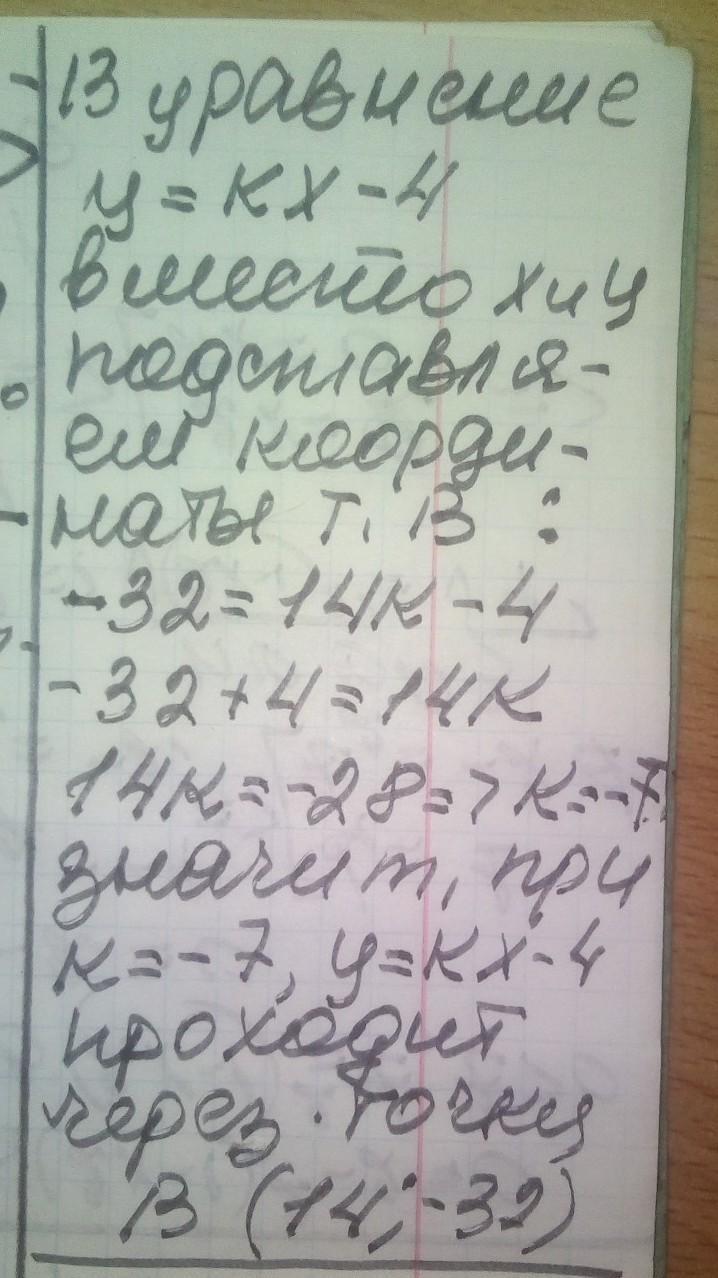 В уравнение
у = кх - 4
вместо х и у
подставля-
ем коорди-
наты т. В :
-32 = 14к - 4
-32 + 4 = 14к
14к = -28 => к = -7
значит, при
к = -7, у = кх - 4
проходит
через точку
В (14; -32)